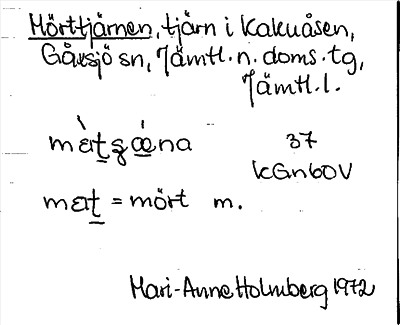 Mörttjärnen, tjärn i Kakuåsen,
Gåxsjö sn, Jämtl. n. doms. tg,
Jämtl. l.
37
KGn60V
mæt = mört m.
Mari-Anne Holmberg 1972